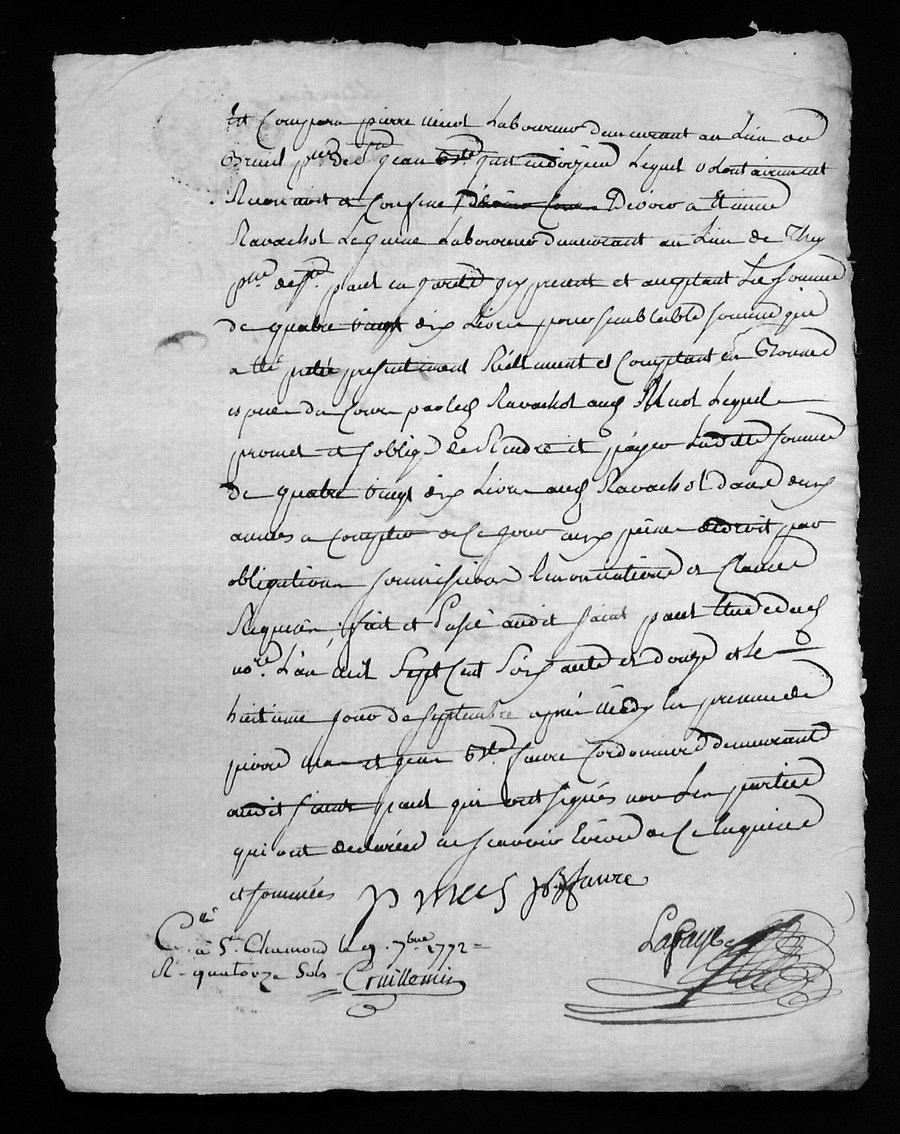 Est Comparu pierre Laboureur demeurant au Lieu du
Breuil psse de st jean Lequel volontairement
Reconnoit et Confesse Devoir a Etienne
Ravachol Laboureur demeurant au Lieu de
psse de st paul en jarest cy present et aceptant La somme
de quatre vingt dix Livres pour semblable somme qui
a été presentement Réellement et Comptant en bonnes
espece du Cours par led Ravachol aud Lequel
promet et s'oblige de Rendre et payer Laditte somme
de quatre vingt dix Livres aud Ravachol dans deux
années a Compter de Ce jour aux peines de droit par
obligations soumissions Renontiations et Clauses
Requises fait et Passé audit saint paul Etude dud
nore. L'an mil Sept Cent Soixante et douze et Le
huitieme jour de septembre après Midy En presence de
pierre et jean Bte. faure Cordonnier demeurant
audit saint paul qui ont signés non Les parties
qui ont declarées ne scavoir Ecrire de Ce Enquises
et sommées p mres JB faure
Cé. à St. Chamond le 9. 7bre 1772 =
R. quatorze Sols Cruillemin
Lafay